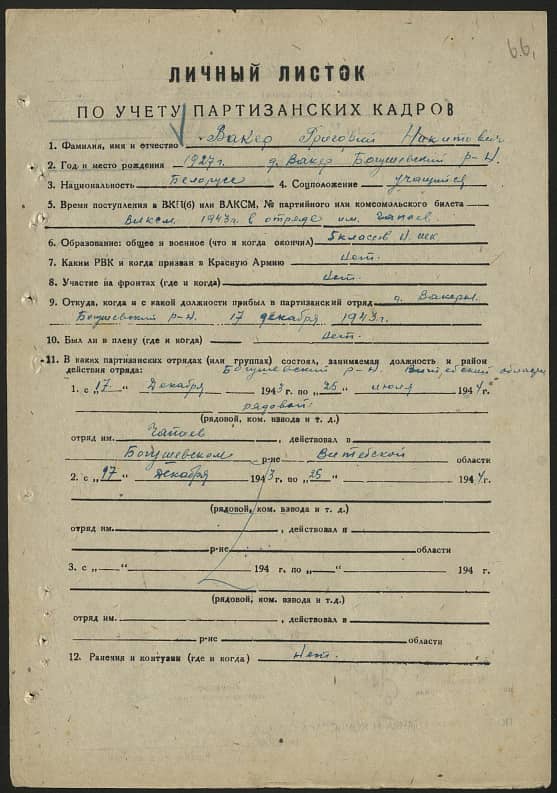 66,
ЛИЧНЫЙ ЛИСТОК
ПО УЧЕТУ ПАРТИЗАНСКИХ КАДРОВ
1. Фамилия, имя и отчество Вакер Григорий Никитович
2. Год и место рождения 1927 г. д. Вакер Богушевский р-н.
3. Национальность Белорус 4. Соцположение учащийся
5. Время поступления в ВКП(б) или ВЛКСМ, № партийного или комсомольского билета
ВЛКСМ 1943 г. в отряде им. Чапаев.
6. Образование: общее и военное (что и когда окончил) 5 классов
7. Каким РВК и когда призван в Красную Армию нет.
8. Участие на фронтах (где и когда) нет.
9. Откуда, когда и с какой должности прибыл в партизанский отряд д. Вакеры
Богушевский р-н. 17 декабря 1943 г.
10. Был ли в плену (где и когда) нет.
11. В каких партизанских отрядах (или группах) состоял, занимаемая должность и район
действия отряда: Богушевский р-н. Витебский области
1. с „17“ Декабря 1943 г. по „25“ июля 1944 г.
рядовой
(рядовой, ком. взвода и т. д.)
отряд им. Чапаев, действовал в
Богушевском р-не Витебской области
2. с „17“ Декабря 1943 г. по „25“ 1944 г.
(рядовой, ком. взвода и т. д.)
отряд им. , действовал в
р-не области
3. с „ “ 194 г. по „ “ 194 г.
(рядовой, ком. взвода и т.д.)
отряд им. , действовал в
р-не области
12. Ранения и контузии (где и когда) нет.